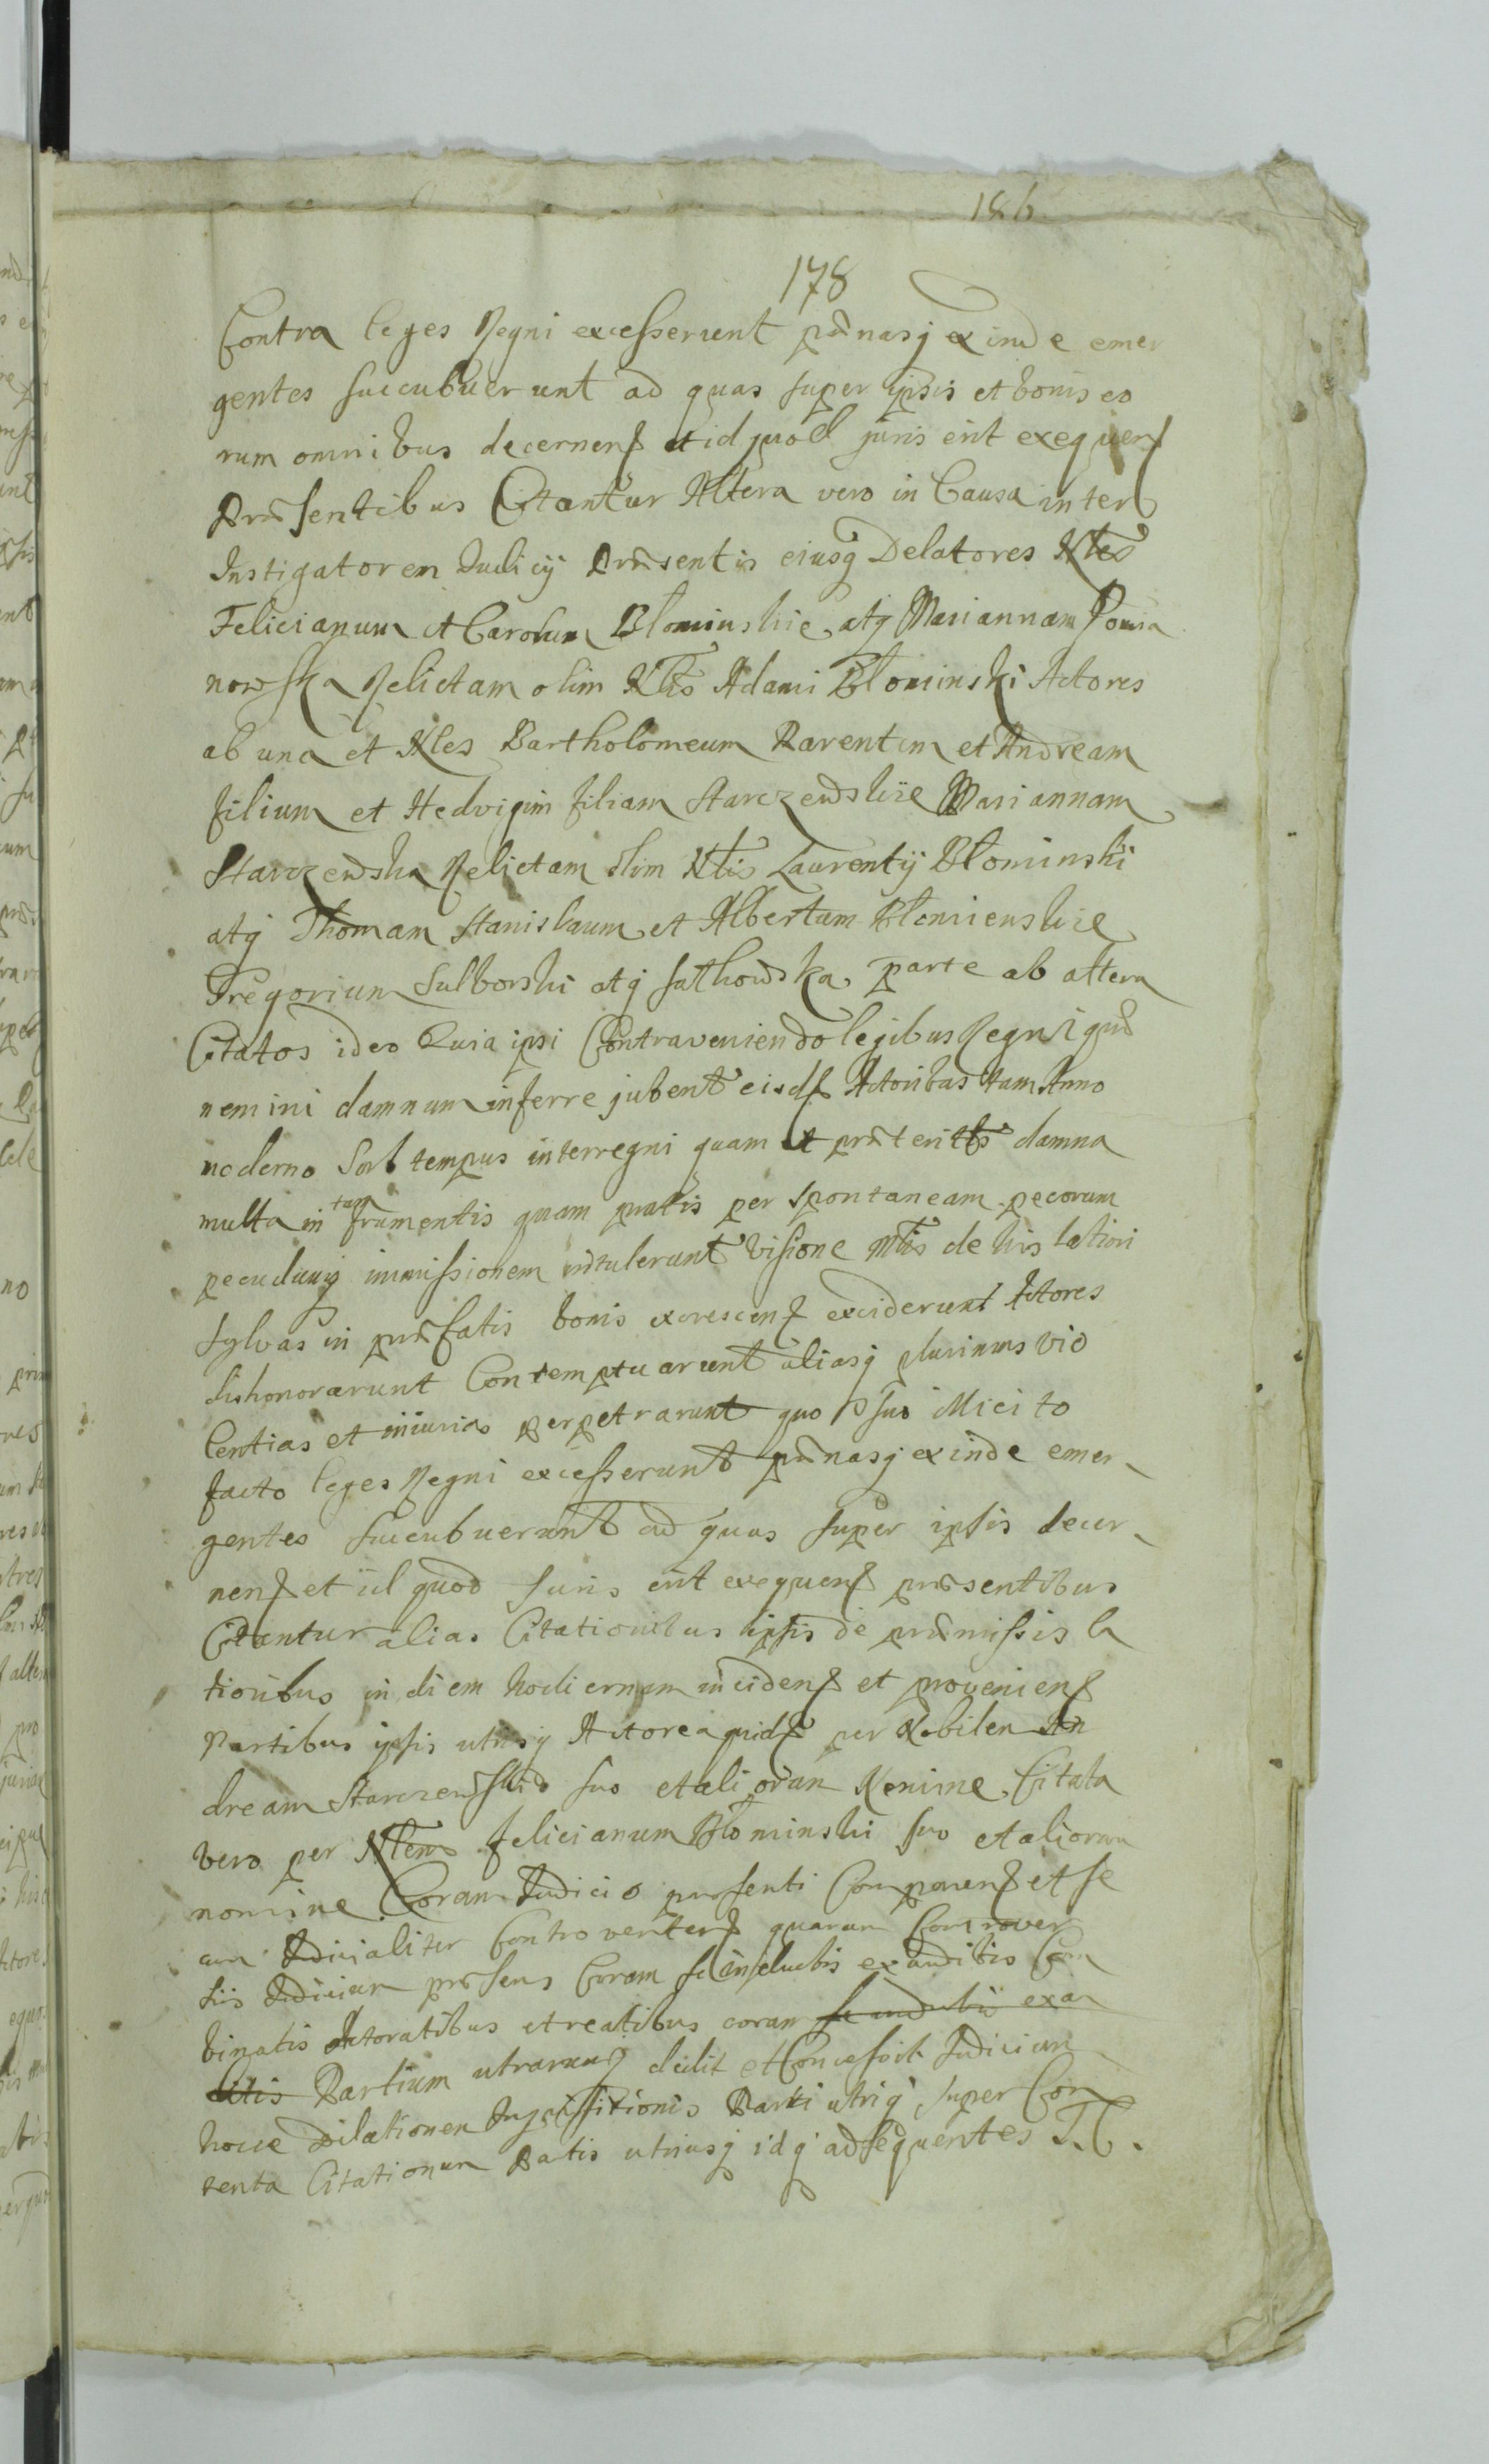 186
178
Contra leges Regni excesserunt pœnasq exinde emer
gentes succubuerunt ad quas super ipsis et bonis eo
rum omnibus decernen et id quod juris erit exequen
Præsentibus Citantur Altera vero in Causa inter
Instigatorem Judicij Præsentis eiusq Delatores Nles
Felicianum et Carolum Błominskie atq Mariannam
nowska Relictam olim Nlis Adami Błominski Actores
ab una et Nles Bartholomeum Parentem et Andream
filium et Hedvigim filiam Starczewskie Mariannam
Starczewska Relictam olim Nlis Laurentij Błominski
atq Thomam Stanislaum et Albertum Błomienskie
Gregorium Sulborski atq parte ab altera
Citatos ideo Quia ipsi Contraveniendo legibus Regni quæ
nemini damnum inferre jubent eisd Actoribus tam Anno
moderno Sub tempus interregni quam et præteritis damna
multa in tam frumentis quam pratis per spontaneam pecorum
pecudumq immissionem intulerunt Visione Mlis de his latiori
Sylvas in præfatis bonis excrescen exciderunt Actores
dishonorarunt Contemptuarunt aliasq plurimas vio
lentias et iniurias perpetrarunt quo suo illicito
facto leges Regni excesserunt pœnasq exinde emer
gentes succubuerunt ad quas super ipsis decer
nen et id quod Juris erit exequen præsentibus
Citantur alias Citationibus ipsis de præmissis la
tioribus in diem hodiernam inciden et provenien
Partibus ipsis utrisq Actorea quid per Nobilem An
dream Starczewski suo et aliorum Nomine Citata
vero per Nlem Felicianum Błominski suo et aliorum
nomine Coram Judicio præsenti Comparen et se
cum Judicialiter Controverten quarum Controver
siis Judicium præsens Coram se inductis exauditis Com
binatis Actoratibus et reatibus coram se inductis exau
ditis Partium utrarumq dedit et Concessit Judicium
hocce Dilationem Inquisitionis Parti utriq super Con
tenta Citationum Partis utriusq idq ad sequentes T.C.